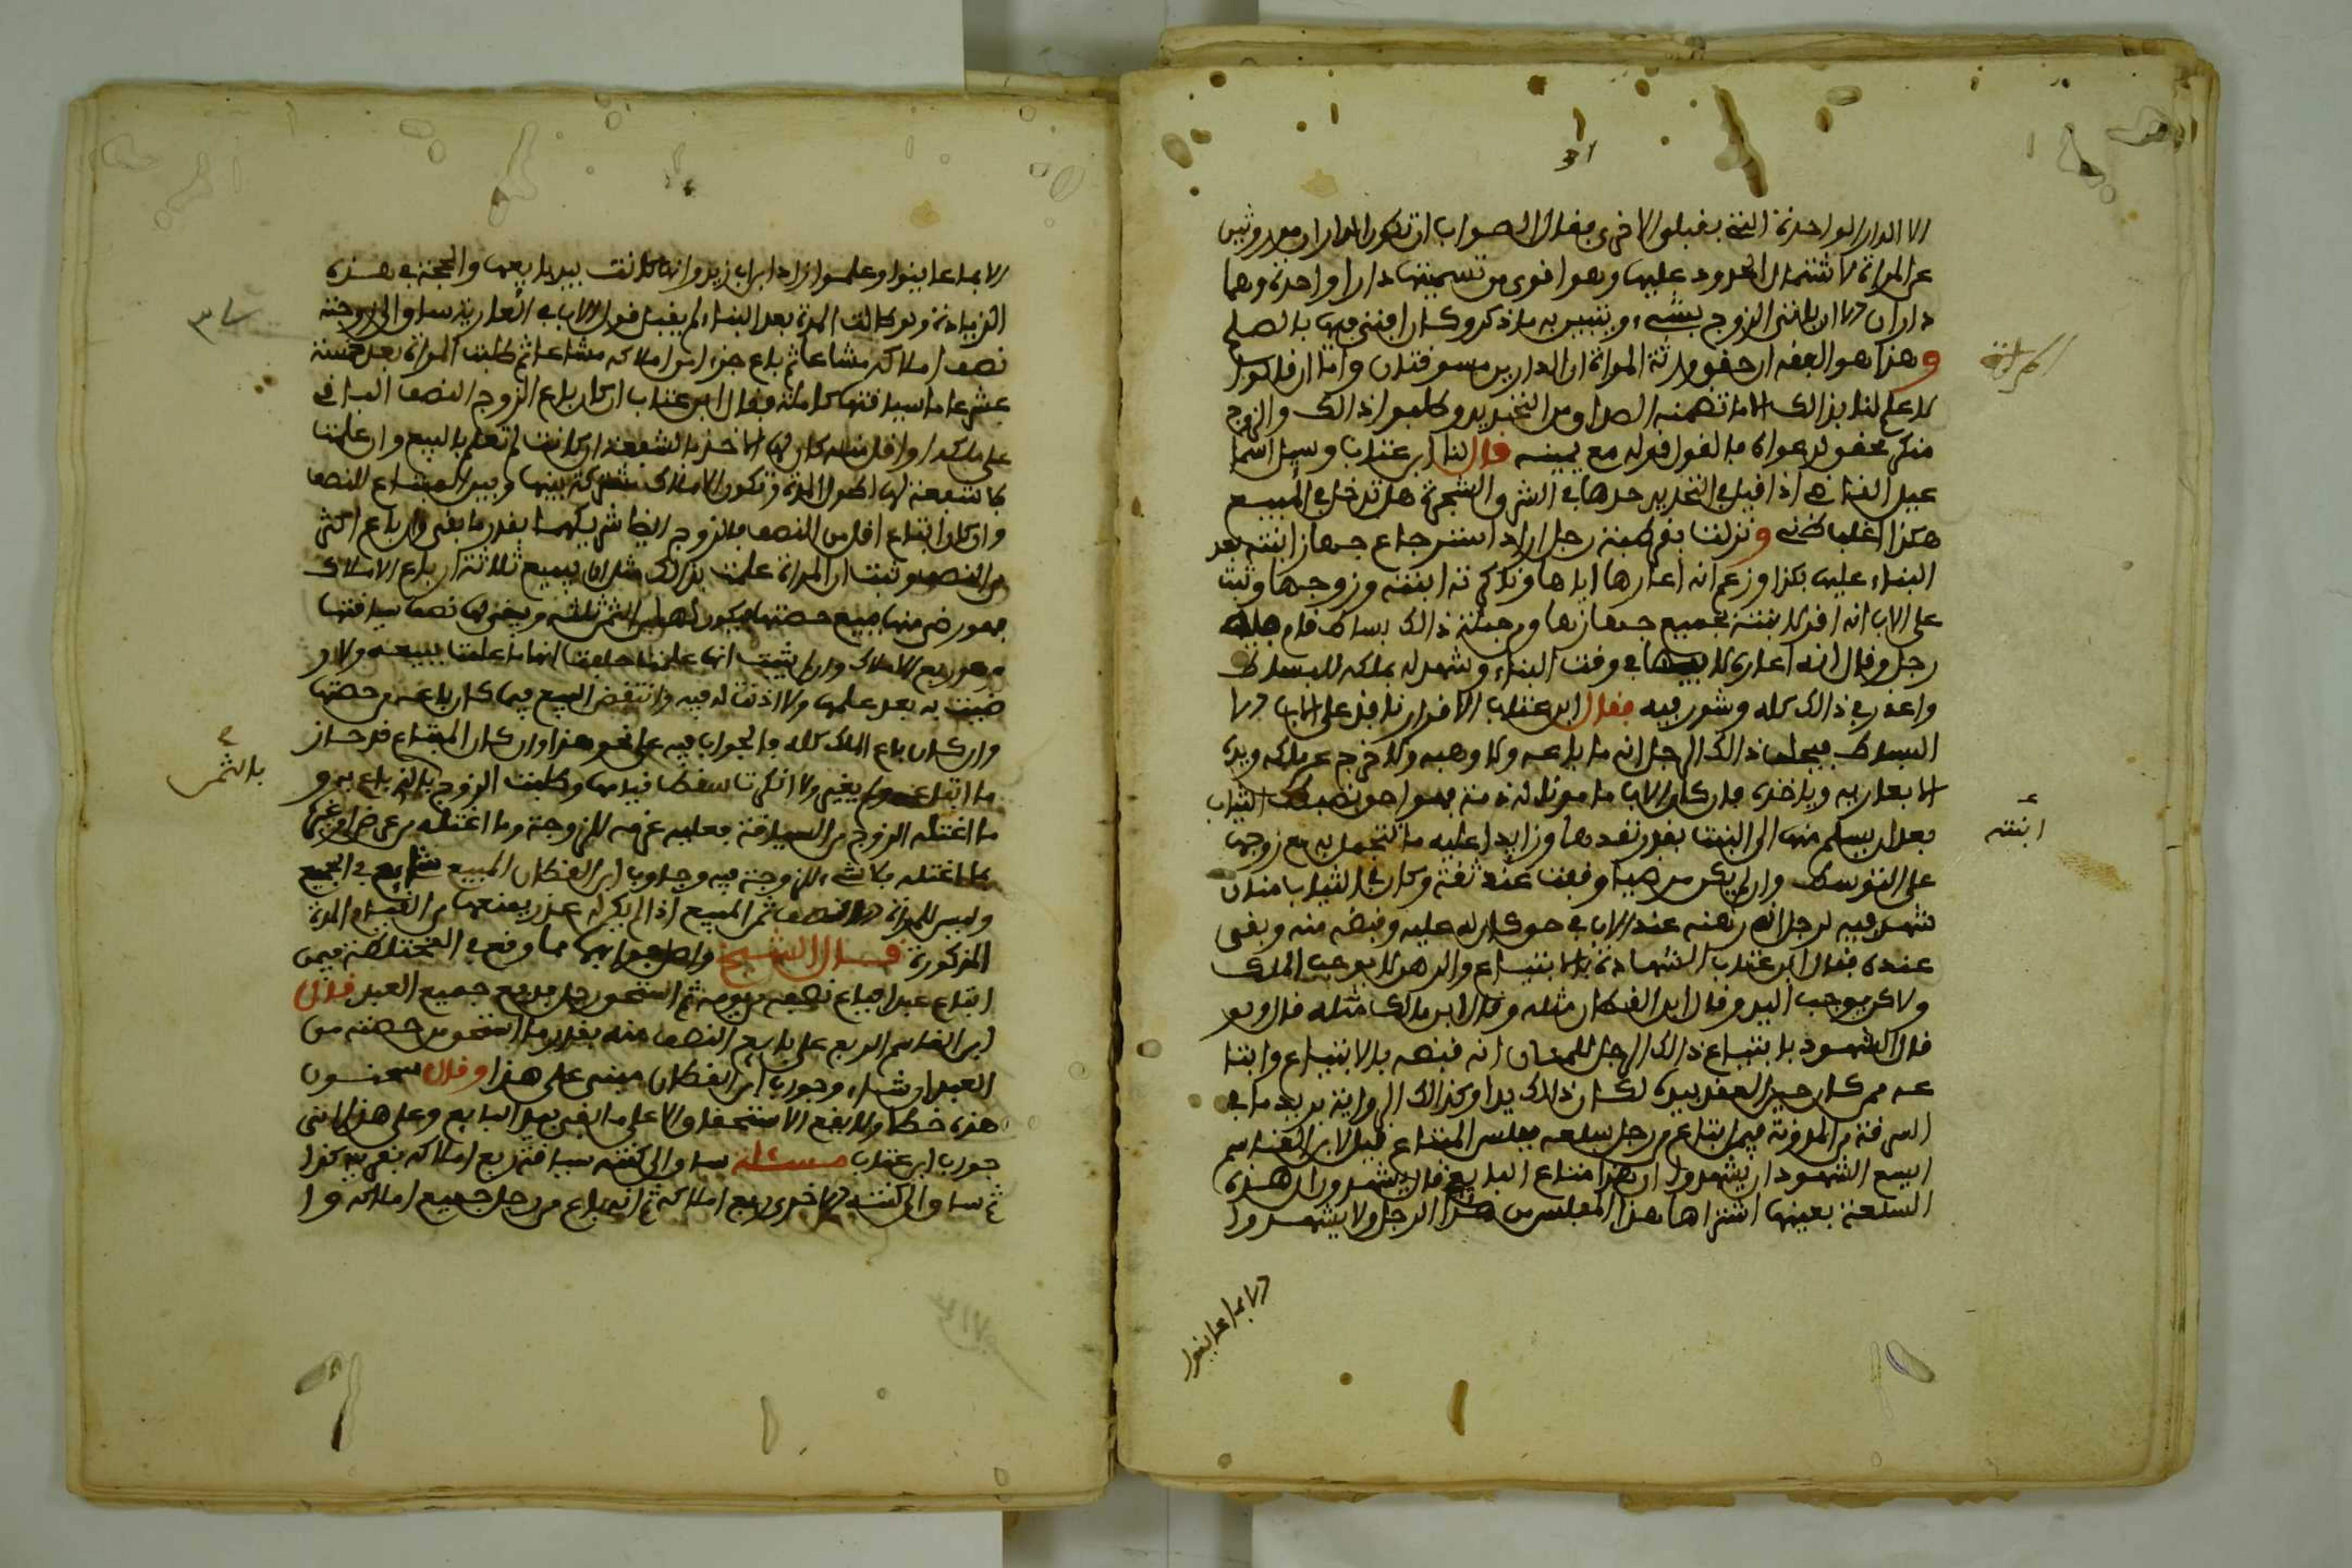 الا الدار الواحدة التى بقبلي الاخرى فقال الصواب ان تكون الداران موروثتين
عن المراة لاشتمال الحدود عليها وهو اقوى من تسميتها دارا واحدة وهما
داران الا ان ياتى الزوج بشىء ويتبين به ما ذكر وكان افتى فيها بالصلح
وهذا هو الفقه ان حقق ورثة المراة ان الدارين مسوقتان واما ان قالوا
لا علم لنا بذالك الا ما تضمنه الصداق من التحديد وطلبوا ذالك والزوج
منكر محقق لدعواه فالقول قوله مع يمينه قال لنا ابن عتاب وسئل
عبد الله اذا قيل في التحديد حدها في الشرق الشجرة هل تدخل في المبيع
هكذا اغلب ظنى ونزلت بقرطبة رجل اراد استرجاع جهاز ابنته بعد
البناء عليها بكذا وزعم انه اعارها اياها وناكرته ابنته وزوجها وثبت
على الاب انه اقر لابنته بجميع جهازها ومن جملة ذالك بساط قام فيه
رجل وقال انه اعاره لابيها في وقت البناء وشهد له بملكه للبساط
واعذر في ذالك كله وشور فيه فقال ابن عتاب الاقرار نافذ على الاب الا
البساط فيحلف ذالك الرجل انه ما باعه ولا وهبه ولا خرج عن ملكه ويده
الا بعارية وياخذه فان كان الاب مامونا له ذمة فهو احق بضبط الثياب
بعد ان يسلم منها الى البنت بقدر نقدها وزايدا عليه ما تتجمل به مع زوجها
على التوسط وان لم يكن مرضيا وقفت عند ثقة وكان في الثياب
شهد فيه لرجل انه رهنه عند الاب في حق كان له عليه وقبضه منه وبقى
عنده فقال ابن عتاب الشهادة بالابتياع والرهن لا يوجب الملك
ولاكن يوجب اليد وقال ابن القطان مثله وقال ابن مالك مثله قال ولو
قال الشهود بابتياع ذالك الرجل للمتاع انه قبضه بالابتياع وابتا
عه ممن كان حين العقد بيده لكان ذالك يدا وكذالك الرواية يريد ما في
السرقة من المدونة فيمن ابتاع من رجل سلعة ففلس المبتاع قيل لابن القاسم
ايسع الشهود ان يشهدوا ان هذا متاع البايع قال يشهدون ان هذه
السلعة بعينها اشتراها هذا المفلس من هذا الرجل ولا يشهدوا
الا بما عاينوا
ابنته
الا بما عاينوا وعلموا زاد ابن ابى زيد وانها كانت بيد بايعها والحجة في هذه
الزيادة ولو طالت المدة بعد البناء لم يقبل قول الاب في العارية ساق الى زوجته
نصف املاكه مشاعا ثم باع جزءا من املاكه مشاعا ثم طلبت المراة بعد خمسة
عشر عاما سياقتها كاملة فقال ابن عتاب ان كان باع الزوج النصف الباقى
على ملكه او اقل منه كان لها الاخذ بالشفعة ان كانت لم تعلم بالبيع وان علمت
فلا شفعة لها لطول المدة وتكون الاملاك مشتركة بينها وبين المبتاع للنصف
وان كان ابتاع اقل من النصف فالزوج ايضا شريكهما بقدر ما بقى وان باع اكثر
من النصف وثبت ان المراة علمت بذالك مثل ان يبيع ثلاثة ارباع الاملاك
فهو رضى منها ببيع حصتها فيكون لها من الثمن ثلثه ويبقى لها نصف سياقتها
وهو ربع الاملاك وان لم يثبت انها علمت حلفت انها ما علمت ببيعه ولا ر
ضيت به بعد علمها ولا اذنت له فيه وانتقض البيع فيما كان باعه من حصتها
وان كان باع الملك كله فالجواب فيه على نحو هذا وان كان المبتاع قد حاز
ما ابتاعه ولم يغير ولا انكرتا سقط قيامها وطلبت الزوج بالذى باع به و
ما اغتله الزوج من السياقة فعليه غرمه للزوجة وما اغتله من عرض او غيرها
مما اغتله فلا شىء للزوجة فيه وجاوب ابن القطان المبيع شايع في الجميع
وليس للمراة الا نصف ثمن المبيع اذا لم يكن له عذر يمنعها من القيام المدة
المذكورة قال الشيخ واصل جوابهما مما وقع في المختلطة فيمن
ابتاع عبدا فباع نصفه من يومه ثم استحق رجل ربع جميع العبد فقال
ابن القاسم الربع على بايع النصف منه بقدر ما استحق من حصته من
العبد ان شاء وجواب ابن القطان مبنى على هذا وقال سحنون
هذه خطا ولا يقع الاستحقاق الا على ما بقى بيد البايع وعلى هذا اتى
جواب ابن عتاب مسئلة ساق الى كنته سياقة ربع املاكه بقرية كذا
ثم ساق الى كنته الاخرى ربع املاكه ثم انه باع من رجل جميع املاكه وا
بالثمن